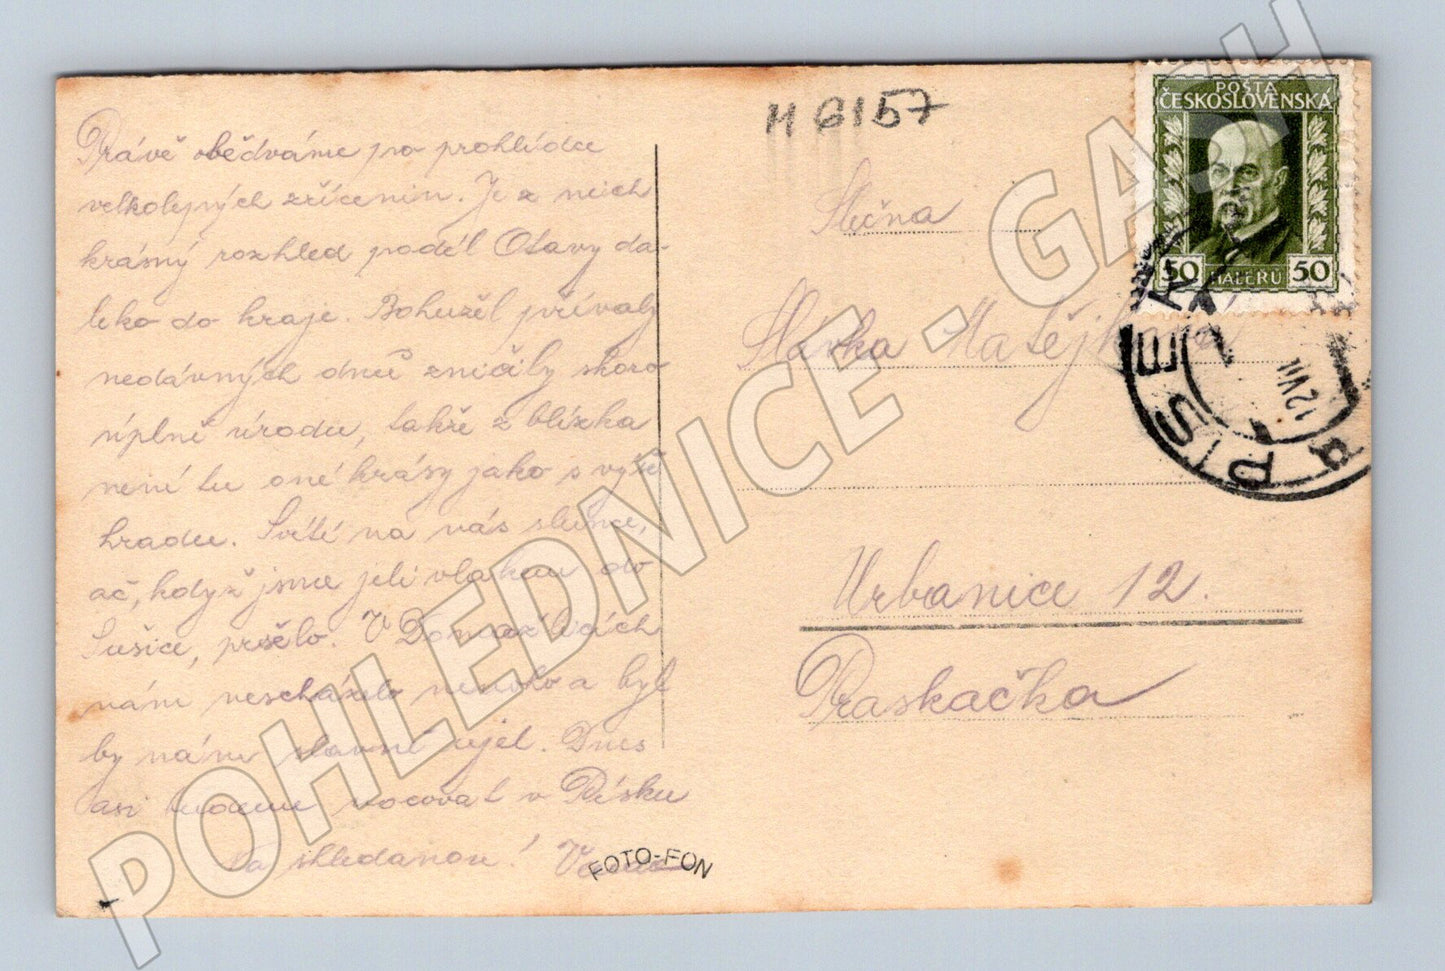 Právě obědváme po prohlídce
velkolepných zřícenin. Je z nich
krásný rozhled podél Otavy da-
leko do kraje. Bohužel přívaly
nedávných dnů zničily skoro
úplně úrodu, takže z blízka
není tu oné krásy jako s výše
hradu. Svítí na nás slunce,
ač, když jsme jeli vlakem do
Sušice, pršelo. V Domažlicích
nám nescházelo mnoho a byl
by nám slavně ujel. Dnes
asi budeme nocovat v Písku
Na shledanou!
FOTO-FON
M 6157
POŠTA
ČESKOSLOVENSKÁ
50 HALÉŘŮ 50
PÍSEK 1
12 VII
a
Slečna
Slávka Matějková
Urbanice 12.
Praskačka
POHLEDNICE - GASH